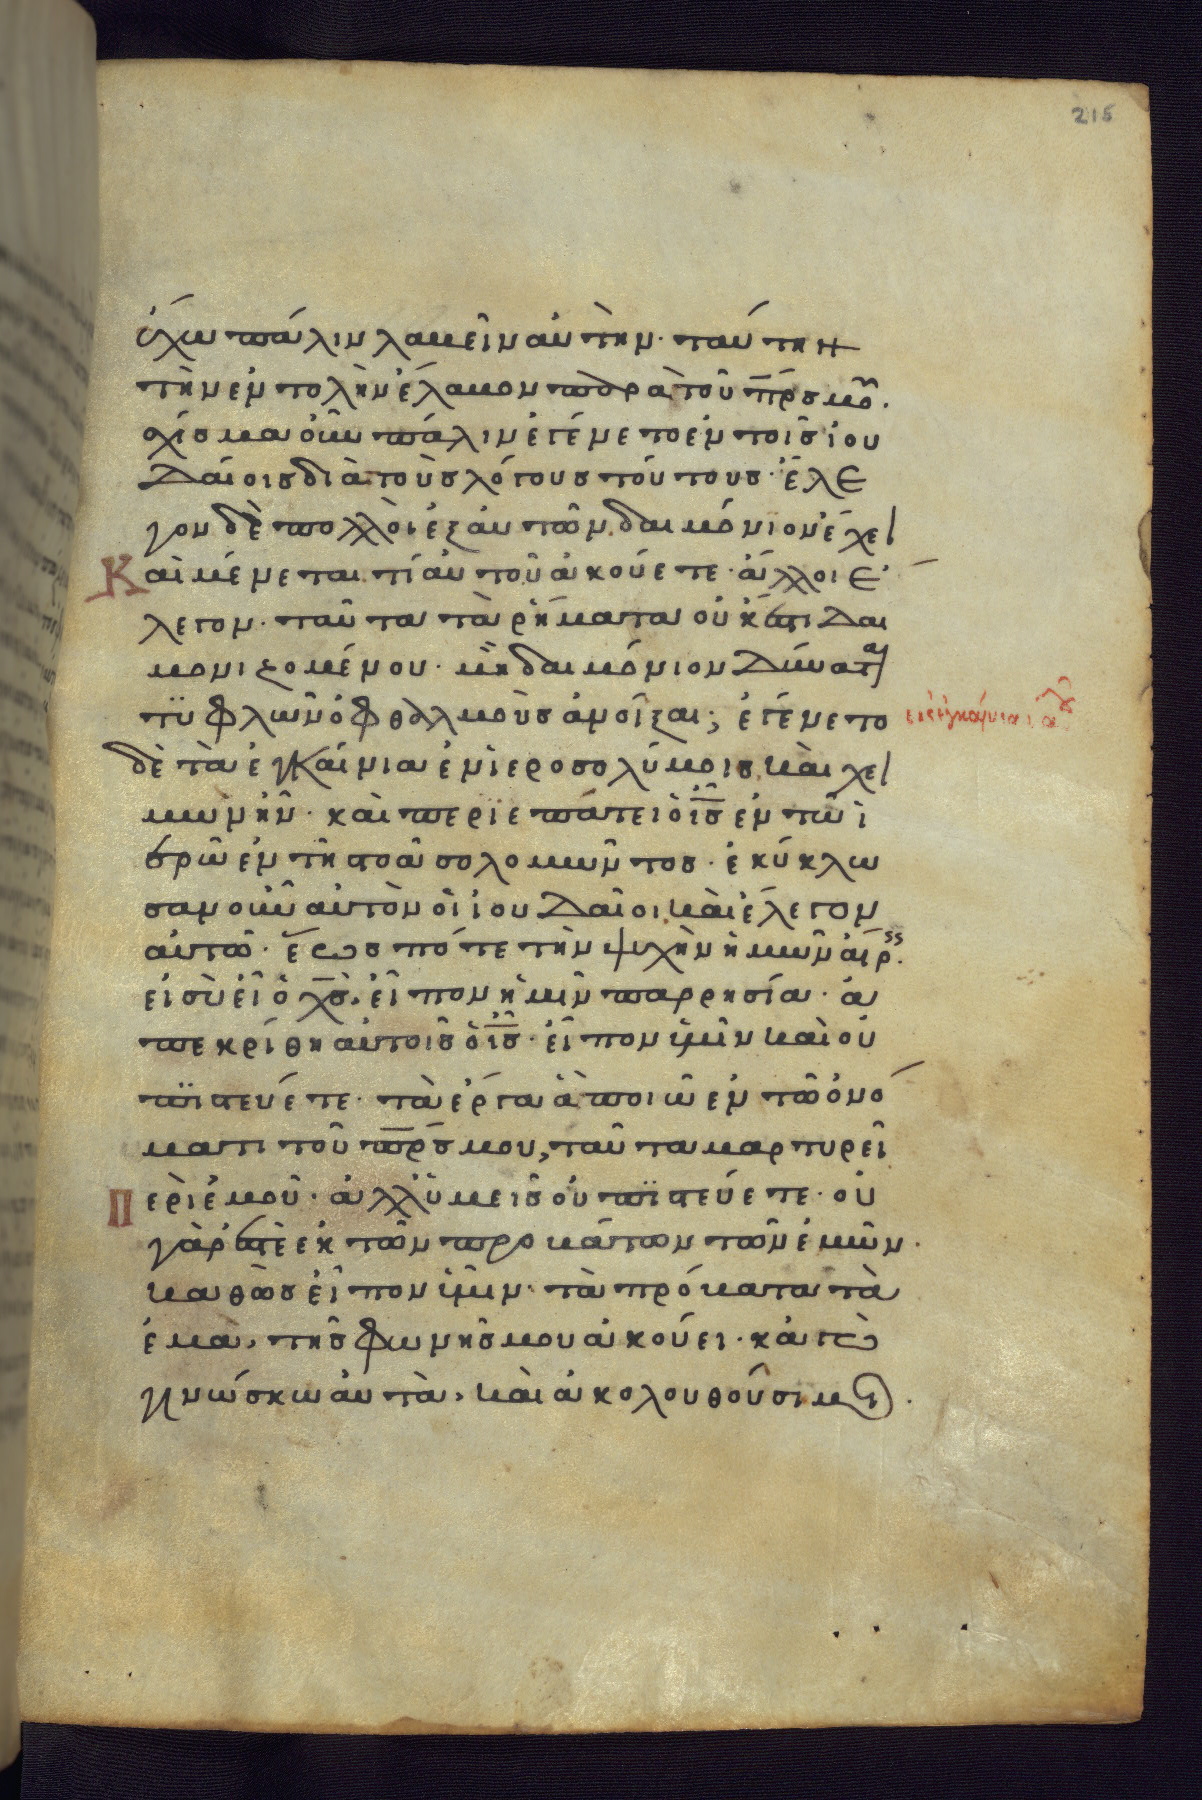 215
ἔχω πάλιν λαβεῖν αὐτὴν· ταύτην
τὴν ἐντολὴν ἔλαβον παρὰ τοῦ π̅ρ̅ς μου.
σχίσμα οὖν πάλιν ἐγένετο ἐν τοῖς ἰου
δαίοις διὰ τοὺς λόγους τούτους· ἔλε
γον δὲ πολλοὶ ἐξ αὐτῶν, δαιμόνιον ἔχει
Καὶ μαίνεται τί αὐτοῦ ἀκούετε· ἄλλοι ἔ
λεγον· ταῦτα τὰ ῥήματα οὐκ ἔστι δαι
μονιζομένου· μὴ δαιμόνιον δύναται
τυφλῶν ὀφθαλμοὺς ἀνοῖξαι; ἐγένετο
εἰς ἐγκαίνια
δὲ τὰ ἐγκαίνια ἐν ἱεροσολύμοις, καὶ χει
μὼν ἦν· καὶ περιεπάτει ὁ ι̅ς̅ ἐν τῶ ἱ
ερῶ ἐν τῆ στοᾶ σολομῶντος· ἐκύκλω
σαν οὖν αὐτὸν οἱ ἰουδαῖοι, καὶ ἔλεγον
αὐτῶ· ἕως πότε τὴν ψυχὴν ἡμῶν αἴρ.
εἰ σὺ εἶ ὁ χ̅ς̅, εἶπον ἡμῖν παρρησία· ἀ
πεκρίθη αὐτοῖς ὁ ι̅ς̅· εἶπον ὑμῖν καὶ οὐ
πιστεύετε· τὰ ἔργα ἃ ποιῶ ἐν τῶ ὀνό
ματι τοῦ π̅ρ̅ς μου, ταῦτα μαρτυρεῖ
Περὶ ἐμοῦ· ἀλλ ὑμεῖς οὐ πιστεύετε· οὐ
γάρ ἐστὲ ἐκ τῶν προβάτων τῶν ἐμῶν·
καθὼς εἶπον ὑμῖν· τὰ πρόβατα τὰ
ἐμὰ, τῆς φωνῆς μου ἀκούει· κἀγὼ
γινώσκω αὐτὰ, καὶ ἀκολουθοῦσι μοι.